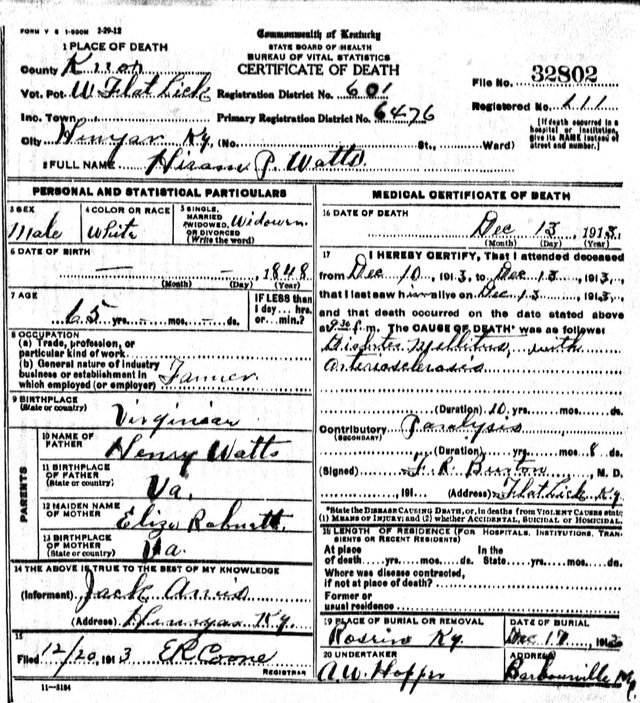 FORM V S 1-500M 2-29-12
Commonwealth of Kentucky
STATE BOARD OF HEALTH
BUREAU OF VITAL STATISTICS
CERTIFICATE OF DEATH
1 PLACE OF DEATH
County Knox
Vot. Pct W Flat Lick Registration District No. 601
File No. 32802
Inc. Town Primary Registration District No. 6476
Registered No. 111
City Hinyar Ky. (No. St., Ward)
[If death occurred in a hospital or institution, give its NAME instead of street and number.]
2 FULL NAME Hiram P. Watts
PERSONAL AND STATISTICAL PARTICULARS
3 SEX Male
4 COLOR OR RACE White
5 SINGLE, MARRIED, WIDOWED, OR DIVORCED (Write the word)
6 DATE OF BIRTH — — 1848
(Month) (Day) (Year)
7 AGE 65 yrs. — mos. — ds.
IF LESS than 1 day... hrs. or... min.?
8 OCCUPATION
(a) Trade, profession, or particular kind of work
(b) General nature of industry business or establishment in which employed (or employer) Farmer
9 BIRTHPLACE (State or country)
10 NAME OF FATHER Henry Watts
PARENTS
11 BIRTHPLACE OF FATHER (State or country) Va.
12 MAIDEN NAME OF MOTHER Eliza
13 BIRTHPLACE OF MOTHER (State or country) Va.
14 THE ABOVE IS TRUE TO THE BEST OF MY KNOWLEDGE
(Informant) Jack
(Address) Ky.
15
Filed 12/20 1913
REGISTRAR
11-3184
MEDICAL CERTIFICATE OF DEATH
16 DATE OF DEATH
Dec 13, 1913.
(Month) (Day) (Year)
17 I HEREBY CERTIFY, That I attended deceased
from Dec 10, 1913, to Dec 13, 1913,
that I last saw him alive on Dec 13, 1913,
and that death occurred on the date stated above
at 9.30 P.m. The CAUSE OF DEATH* was as follows:
Diabetes Mellitus, with
Arteriosclerosis
(Duration) 10 yrs. mos. ds.
Contributory (SECONDARY) Paralysis
(Duration) yrs. mos. 8 ds.
(Signed) Burton, M. D.
, 191 (Address) Flat Lick Ky
*State the DISEASE CAUSING DEATH, or, in deaths from VIOLENT CAUSES state (1) MEANS OF INJURY; and (2) whether ACCIDENTAL, SUICIDAL OR HOMICIDAL.
18 LENGTH OF RESIDENCE (FOR HOSPITALS, INSTITUTIONS, TRANSIENTS OR RECENT RESIDENTS)
At place of death yrs. mos. ds. In the State yrs. mos. ds.
Where was disease contracted, if not at place of death?
Former or usual residence
19 PLACE OF BURIAL OR REMOVAL
DATE OF BURIAL
Ky. Dec 17, 1913
20 UNDERTAKER
ADDRESS
A.W. Hopper Barbourville Ky.